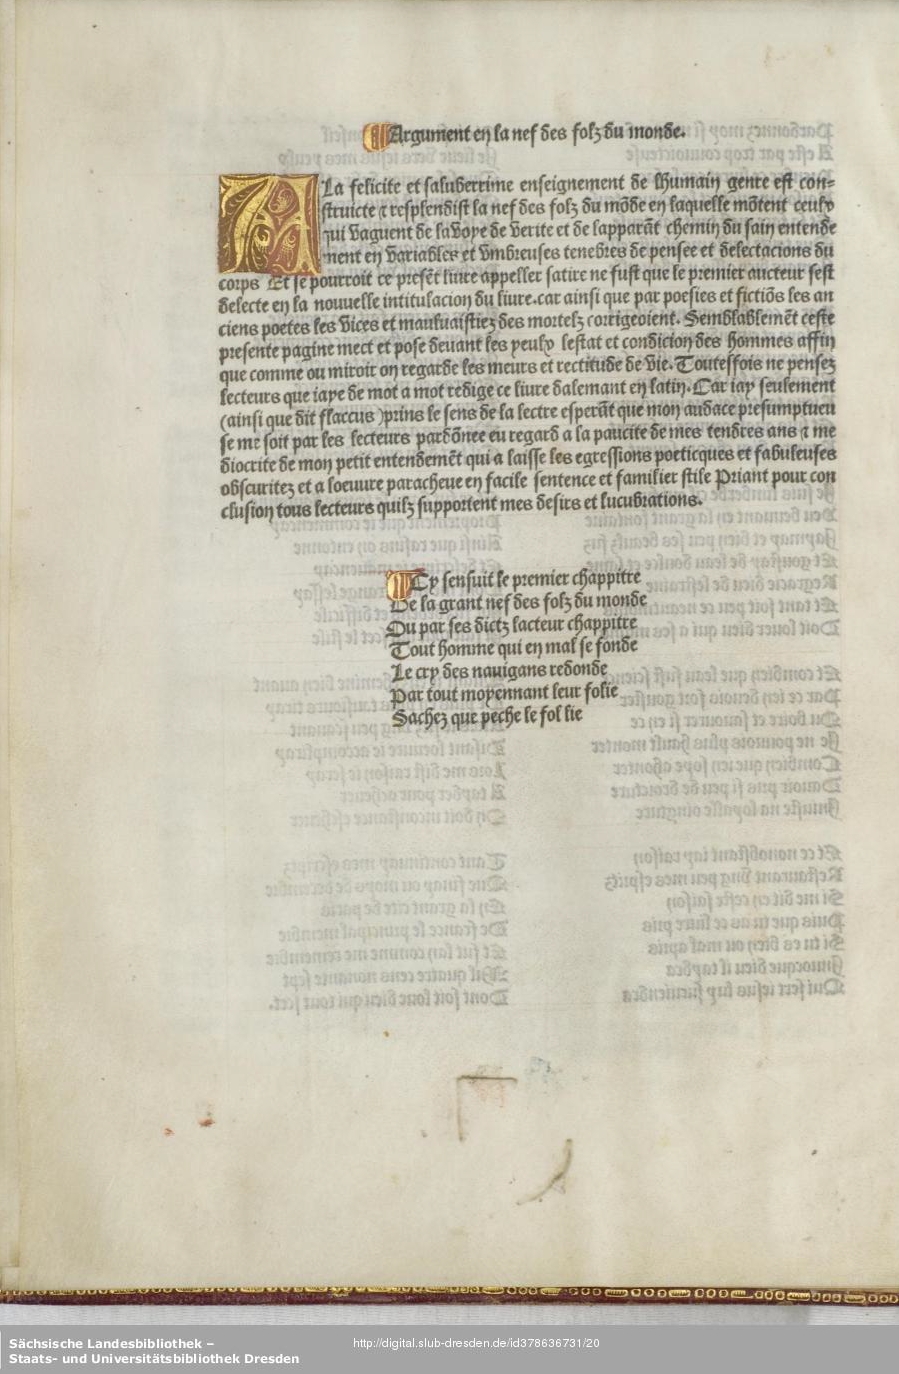 Argument en la nef des folz du monde.
A La felicite et saluberrime enseignement de lhumain genre est con-
struicte ⁊ resplendist la nef des folz du mõde en laquelle mõtent ceulx
qui vaguent de la voye de verite et de lapparãt chemin du sain entende
ment en variables et vmbreuses tenebres de pensee et delectacions du
corps Et se pourroit ce presẽt liure appeller satire ne fust que le premier aucteur sest
delecte en la nouuelle intitulacion du liure.car ainsi que par poesies et fictiõs les an
ciens poetes les vices et mauluaistiez des mortelz corrigeoient. Semblablemẽt ceste
presente pagine mect et pose deuant les yeulx lestat et condicion des hommes affin
que comme ou miroir on regarde les meurs et rectitude de vie. Touteffois ne pensez
lecteurs que iaye de mot a mot redige ce liure dalemant en latin. Car iay seulement
(ainsi que dit flaccus )prins le sens de la lectre esperãt que mon audace presumptueu
se me soit par les lecteurs pardõnee eu regard a la paucite de mes tendres ans ⁊ me
diocrite de mon petit entendemẽt qui a laisse les egressions poeticques et fabuleuses
obscuritez et a loeuure paracheue en facile sentence et familier stile Priant pour con
clusion tous lecteurs quilz supportent mes desirs et lucubrations.
Cy sensuit le premier chappitre
De la grant nef des folz du monde
Ou par ses dictz lacteur chappitre
Tout homme qui en mal se fonde
Le cry des nauigans redonde
Par tout moyennant leur folie
Sachez que peche le fol lie
Sächsische Landesbibliothek –
Staats- und Universitätsbibliothek Dresden
http://digital.slub-dresden.de/id378636731/20